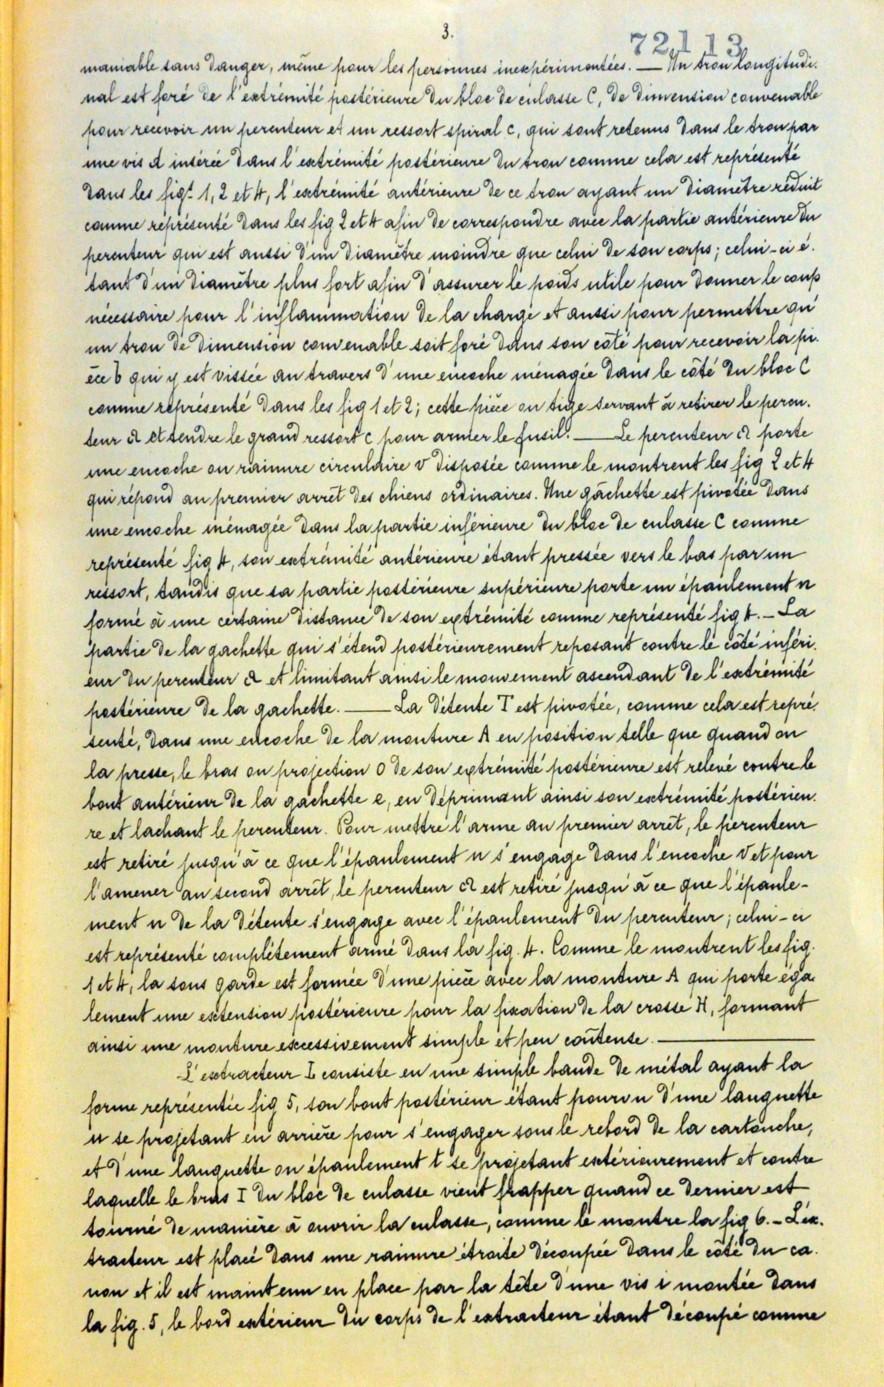 3.
72113
maniable sans danger, même pour les personnes inexpérimentées. — Un trou longitudi-
nal est foré de l'extrémité postérieure du bloc de culasse C, de dimension convenable
pour recevoir un percuteur et un ressort spiral c, qui sont retenus dans le trou par
une vis d insérée dans l'extrémité postérieure du trou comme cela est représenté
dans les figs 1, 2 et 4, l'extrémité antérieure de ce trou ayant un diamètre réduit
comme représenté dans les fig 2 et 4 afin de correspondre avec la partie antérieure du
percuteur qui est aussi d'un diamètre moindre que celui de son corps; celui-ci é-
tant d'un diamètre plus fort afin d'assurer le poids utile pour donner le coup
nécessaire pour l'inflammation de la charge et aussi pour permettre qu'
un trou de dimension convenable soit foré dans son côté pour recevoir la pi-
èce b qui y est vissée au travers d'une encoche ménagée dans le côté du bloc C
comme représenté dans les fig 1 et 2; cette pièce ou tige servant à retirer le percu-
teur a et tendre le grand ressort c pour armer le fusil. — Le percuteur a porte
une encoche ou rainure circulaire v disposée comme le montrent les fig 2 et 4
qui répond au premier arrêt des chiens ordinaires. Une gâchette est pivotée dans
une encoche ménagée dans la partie inférieure du bloc de culasse C comme
représenté fig 4, son extrémité antérieure étant pressée vers le bas par un
ressort, tandis que sa partie postérieure supérieure porte un épaulement n
formé à une certaine distance de son extrémité comme représenté fig 4. — La
partie de la gachette qui s'étend postérieurement reposant contre le côté inféri-
eur du percuteur a et limitant ainsi le mouvement ascendant de l'extrémité
postérieure de la gachette. — La détente T est pivotée, comme cela est repré-
senté, dans une encoche de la monture A en position telle que quand on
la presse, le bras ou projection o de son extrémité postérieure est relevé contre le
bout antérieur de la gachette e, en déprimant ainsi son extrémité postérieu-
re et lachant le percuteur. Pour mettre l'arme au premier arrêt, le percuteur
est retiré jusqu'à ce que l'épaulement n s'engage dans l'encoche v et pour
l'amener au second arrêt, le percuteur a est retiré jusqu'à ce que l'épaule-
ment n de la détente s'engage avec l'épaulement du percuteur; celui-ci
est représenté complètement armé dans la fig. 4. Comme le montrent les fig.
1 et 4, la sous garde est formée d'une pièce avec la monture A qui porte éga-
lement une extension postérieure pour la fixation de la crosse H, formant
ainsi une monture excessivement simple et peu coûteuse. —
L'extracteur L consiste en une simple bande de métal ayant la
forme représentée fig 5, son bout postérieur étant pourvu d'une languette
u se projetant en arrière pour s'engager sous le rebord de la cartouche,
et d'une languette ou épaulement t se projetant extérieurement et contre
laquelle le bras I du bloc de culasse vient frapper quand ce dernier est
tourné de manière à ouvrir la culasse, comme le montre la fig 6. — L'ex-
tracteur est placé dans une rainure étroite découpée dans le côté du ca-
non et il est maintenu en place par la tête d'une vis i montée dans
la fig. 5, le bord extérieur du corps de l'extracteur étant découpé comme